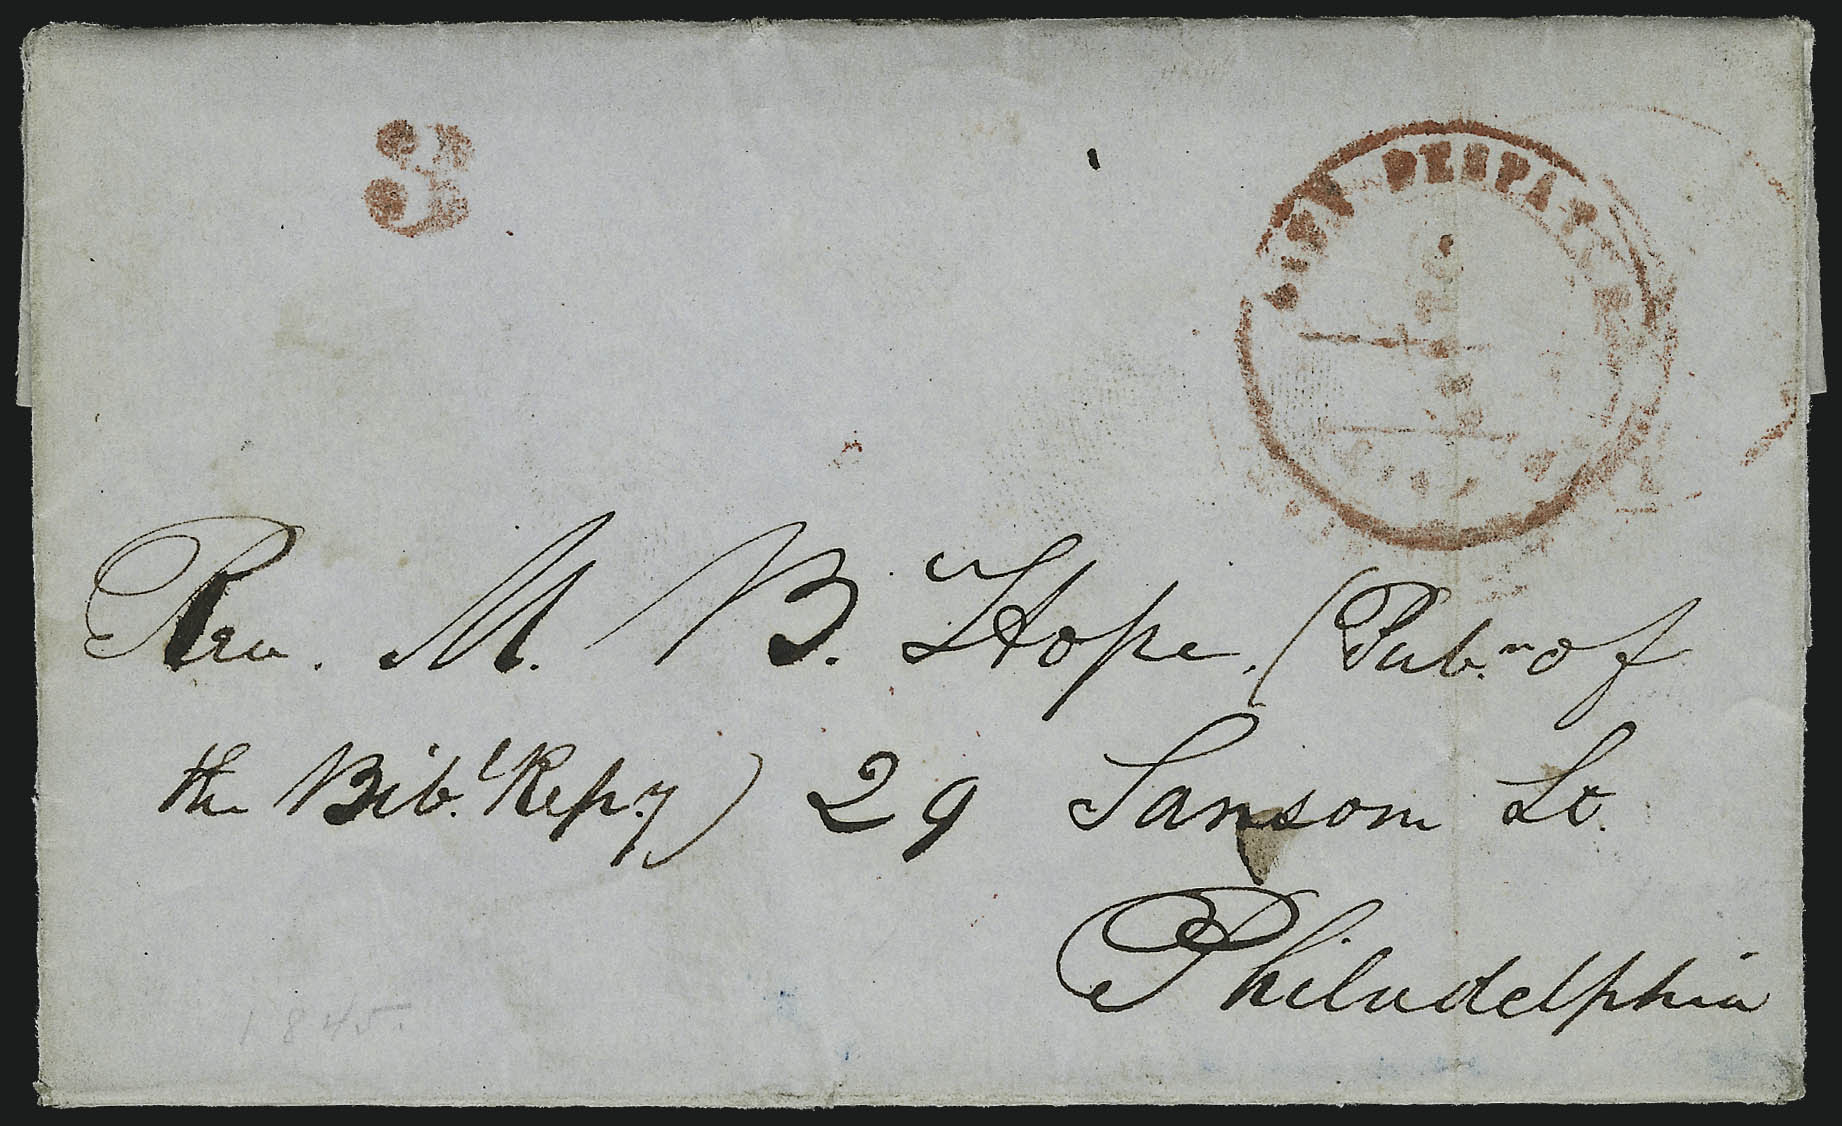 3
CITY DESPATCH
Rev. M. B. Hope, (Pub.n of
the Bib.l Rep.y) 29 Sansom St.
Philadelphia
1845.